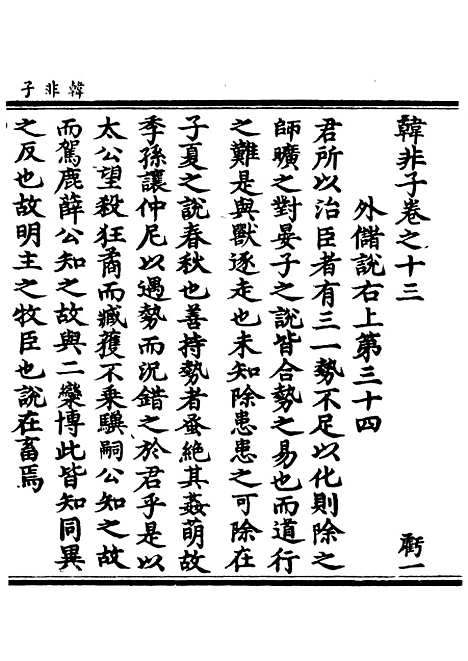 韓非子
韓非子卷之十三
虧一
外儲說右上第三十四
君所以治臣者有三一勢不足以化則除之
師曠之對晏子之說皆合勢之易也而道行
之難是與獸逐走也未知除患患之可除在
子夏之說春秋也善持勢者蚤絶其姦萌故
季孫讓仲尼以遇勢而況錯之於君乎是以
太公望殺狂矞而臧獲不乘驥嗣公知之故
而駕鹿薛公知之故與二欒博此皆知同異
之反也故明主之牧臣也說在畜焉